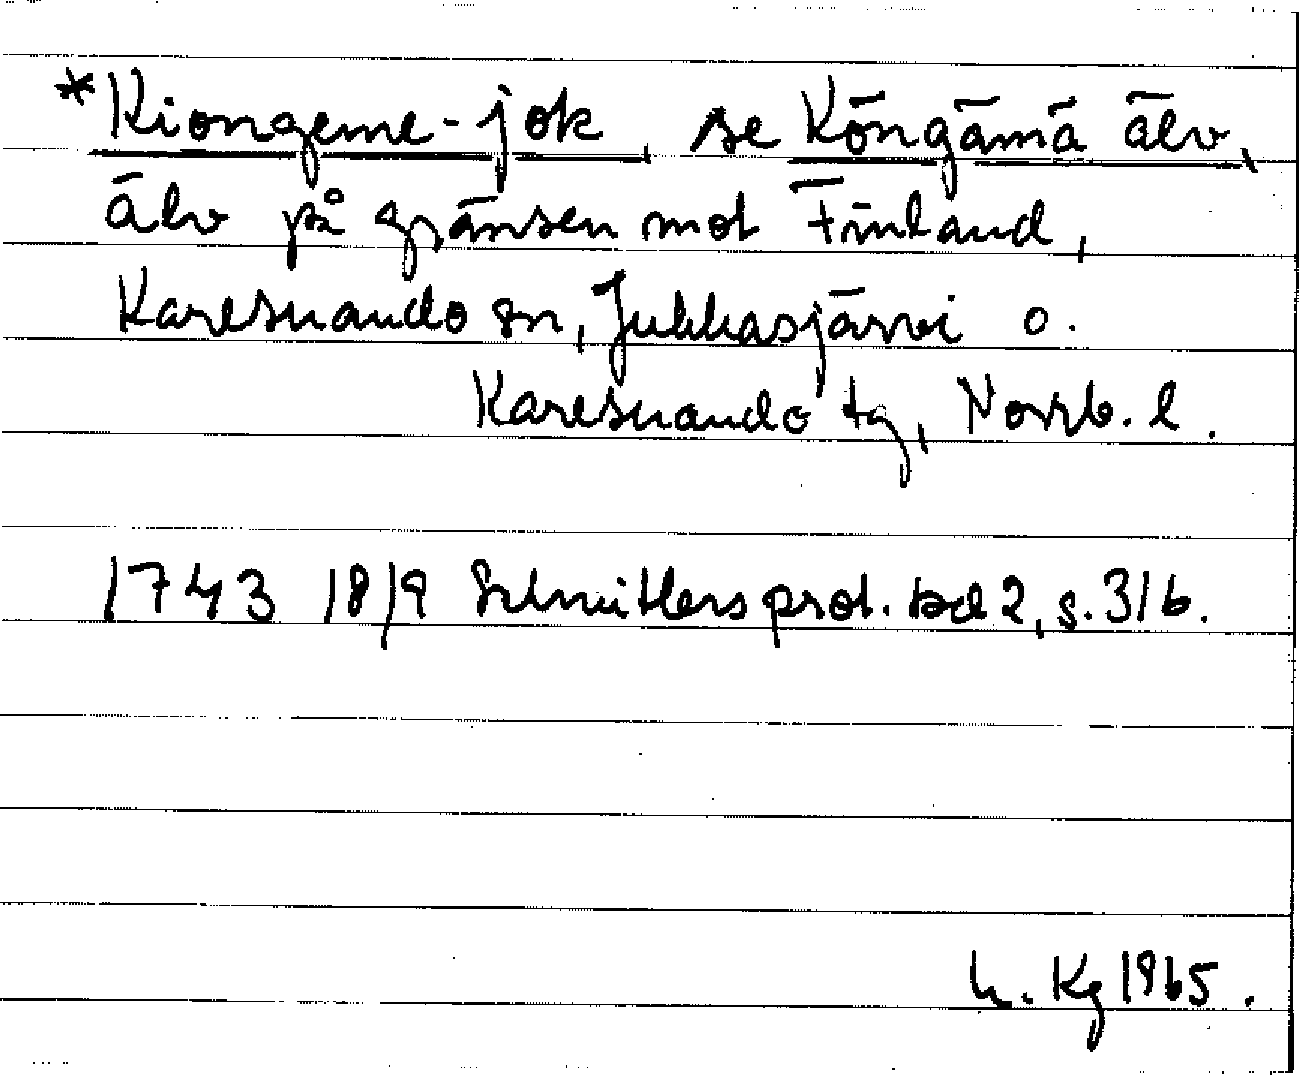 *Kiongeme-jok, se Köngämä älv,
älv på gränsen mot Finland,
Karesuando sn, Jukkasjärvi o.
Karesuando tg, Norrb. l.
1743 18/9 Schnitlers prot. bd 2, s. 316.
h. Kg 1965.